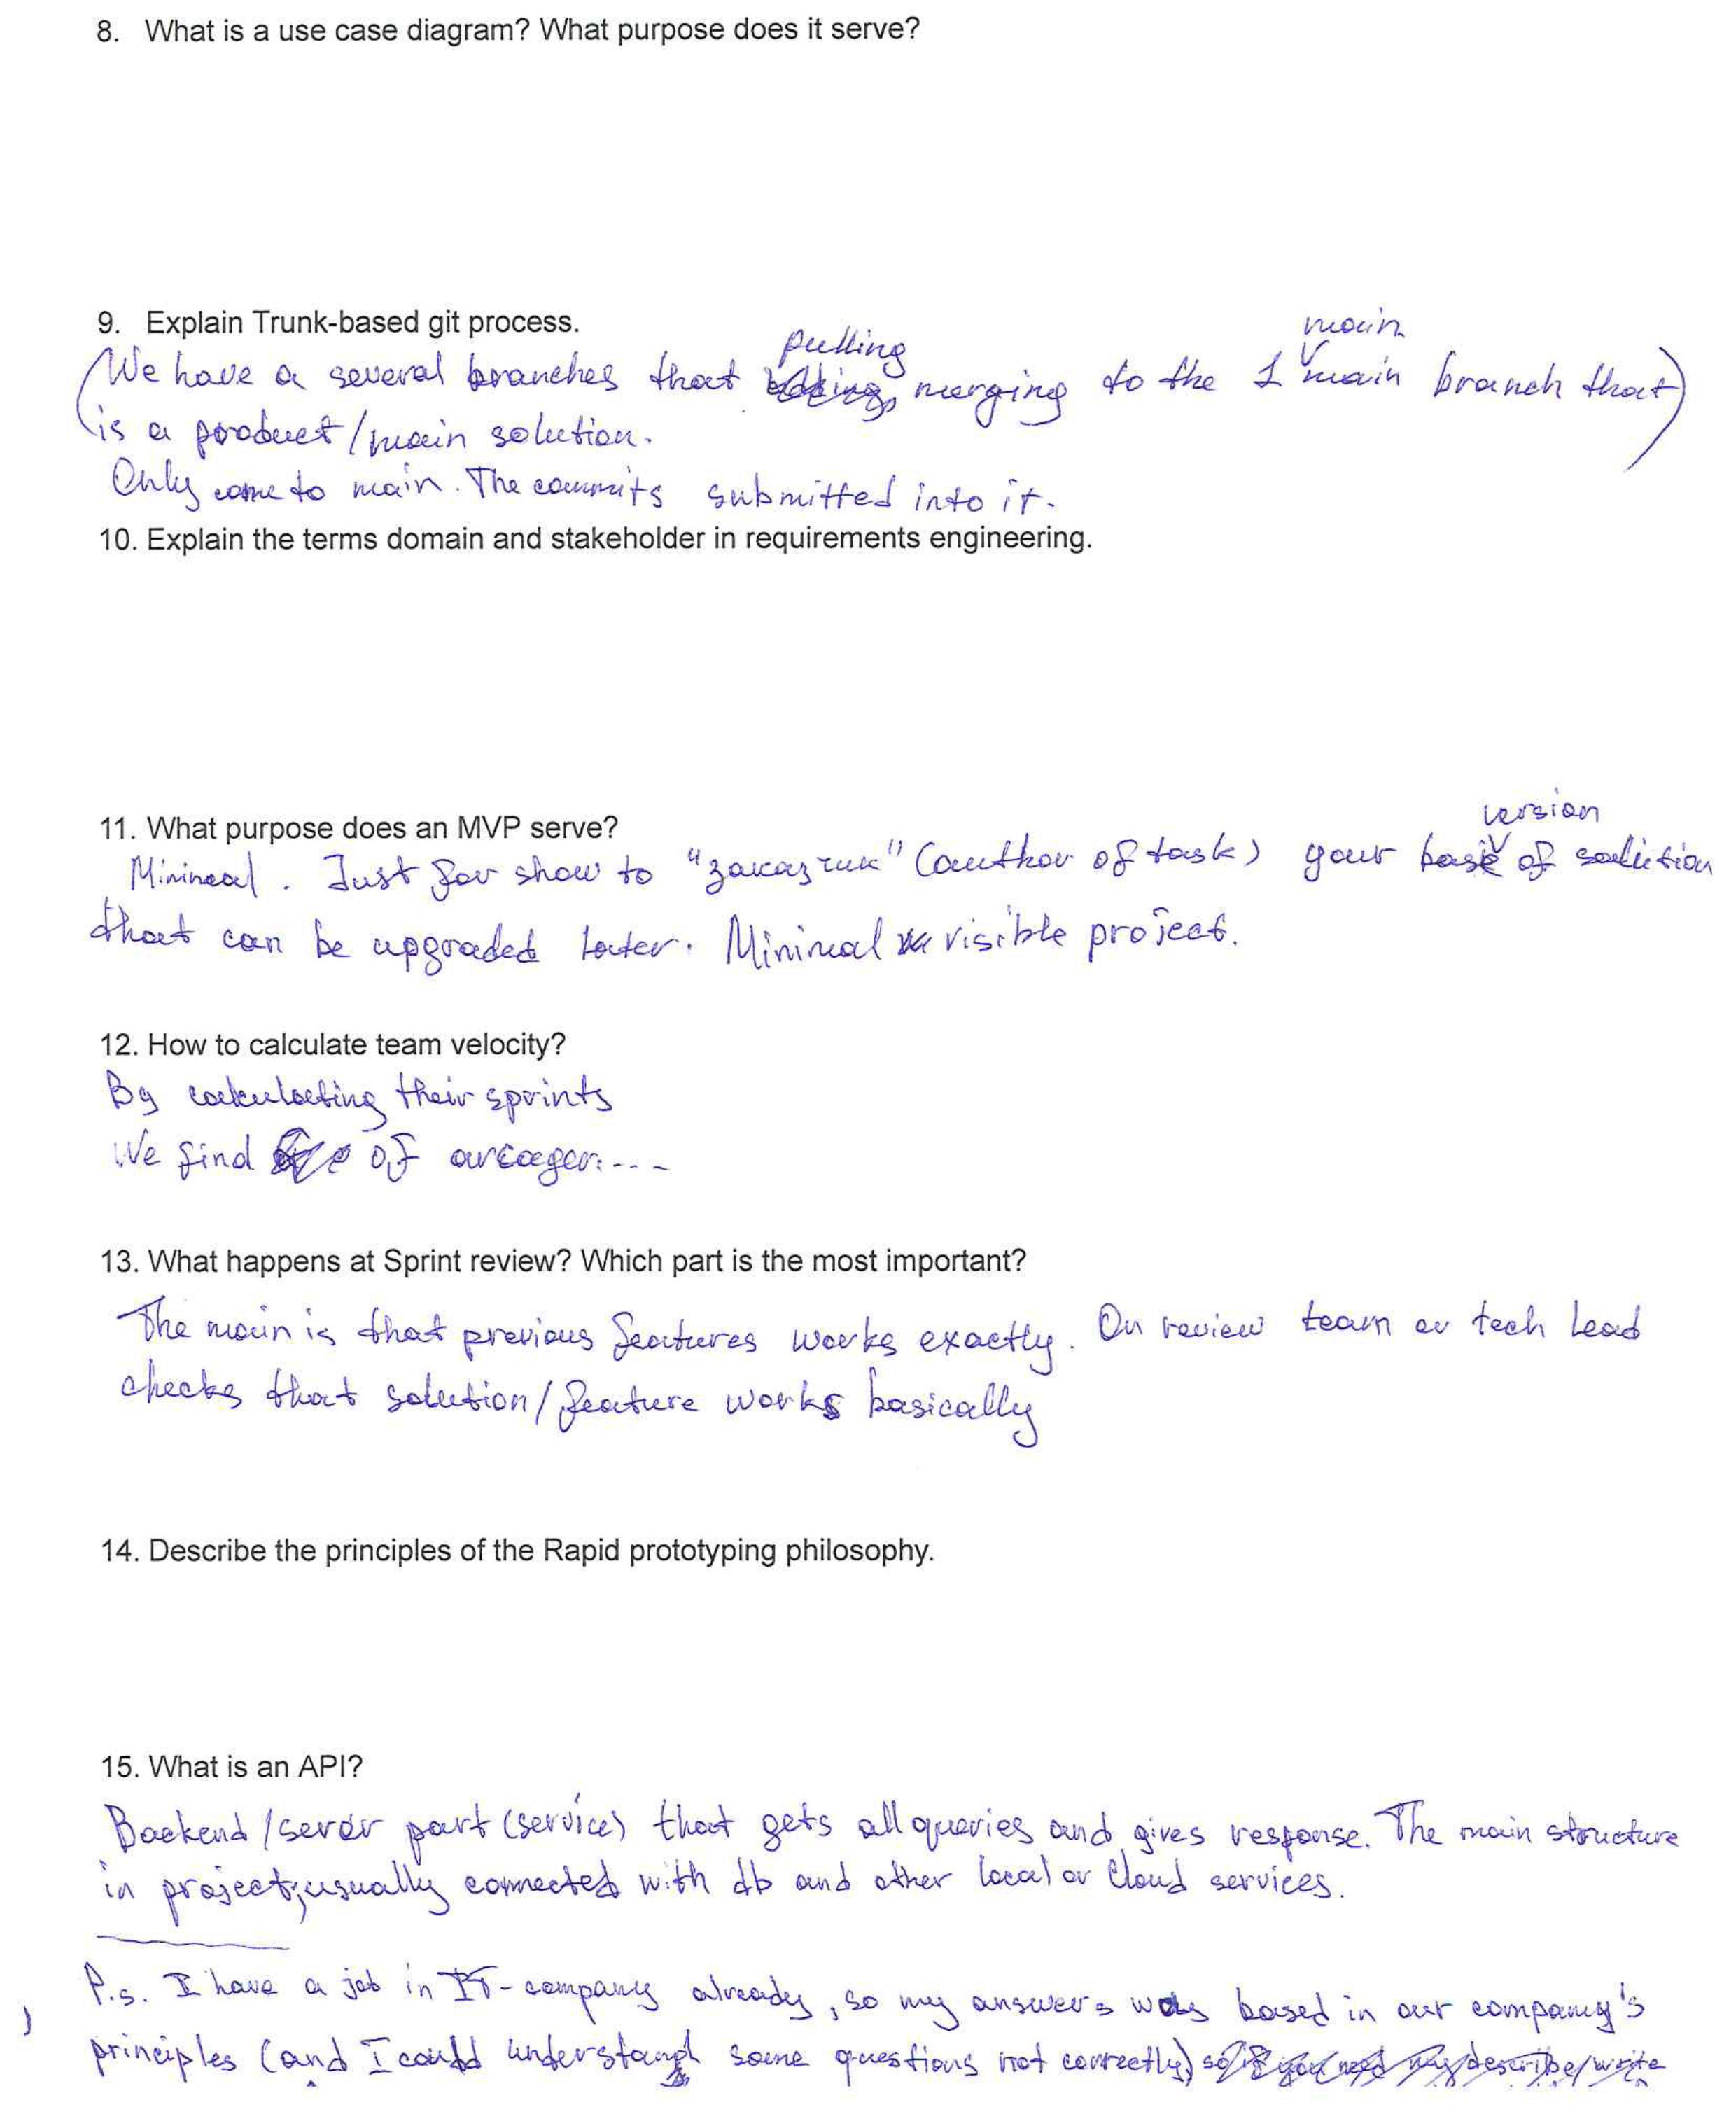 8. What is a use case diagram? What purpose does it serve?
9. Explain Trunk-based git process.
pulling
main
(We have a several branches that merging to the 1 main branch that)
is a product/main solution.
Only come to main. The commits submitted into it.
10. Explain the terms domain and stakeholder in requirements engineering.
11. What purpose does an MVP serve?
version
Minimal. Just for show to "заказчик" (author of task) your basic of solution
that can be upgraded later. Minimal visible project.
12. How to calculate team velocity?
By calculating their sprints
We find of
13. What happens at Sprint review? Which part is the most important?
The main is that previous features works exactly. On review team or tech lead
checks that solution/feature works basically
14. Describe the principles of the Rapid prototyping philosophy.
15. What is an API?
Backend/server part (service) that gets all queries and gives response. The main structure
in project, usually connected with db and other local or cloud services.
P.s. I have a job in IT-company already, so my answers was based in our company's
principles (and I could understand some questions not correctly) so if you need my describe/write